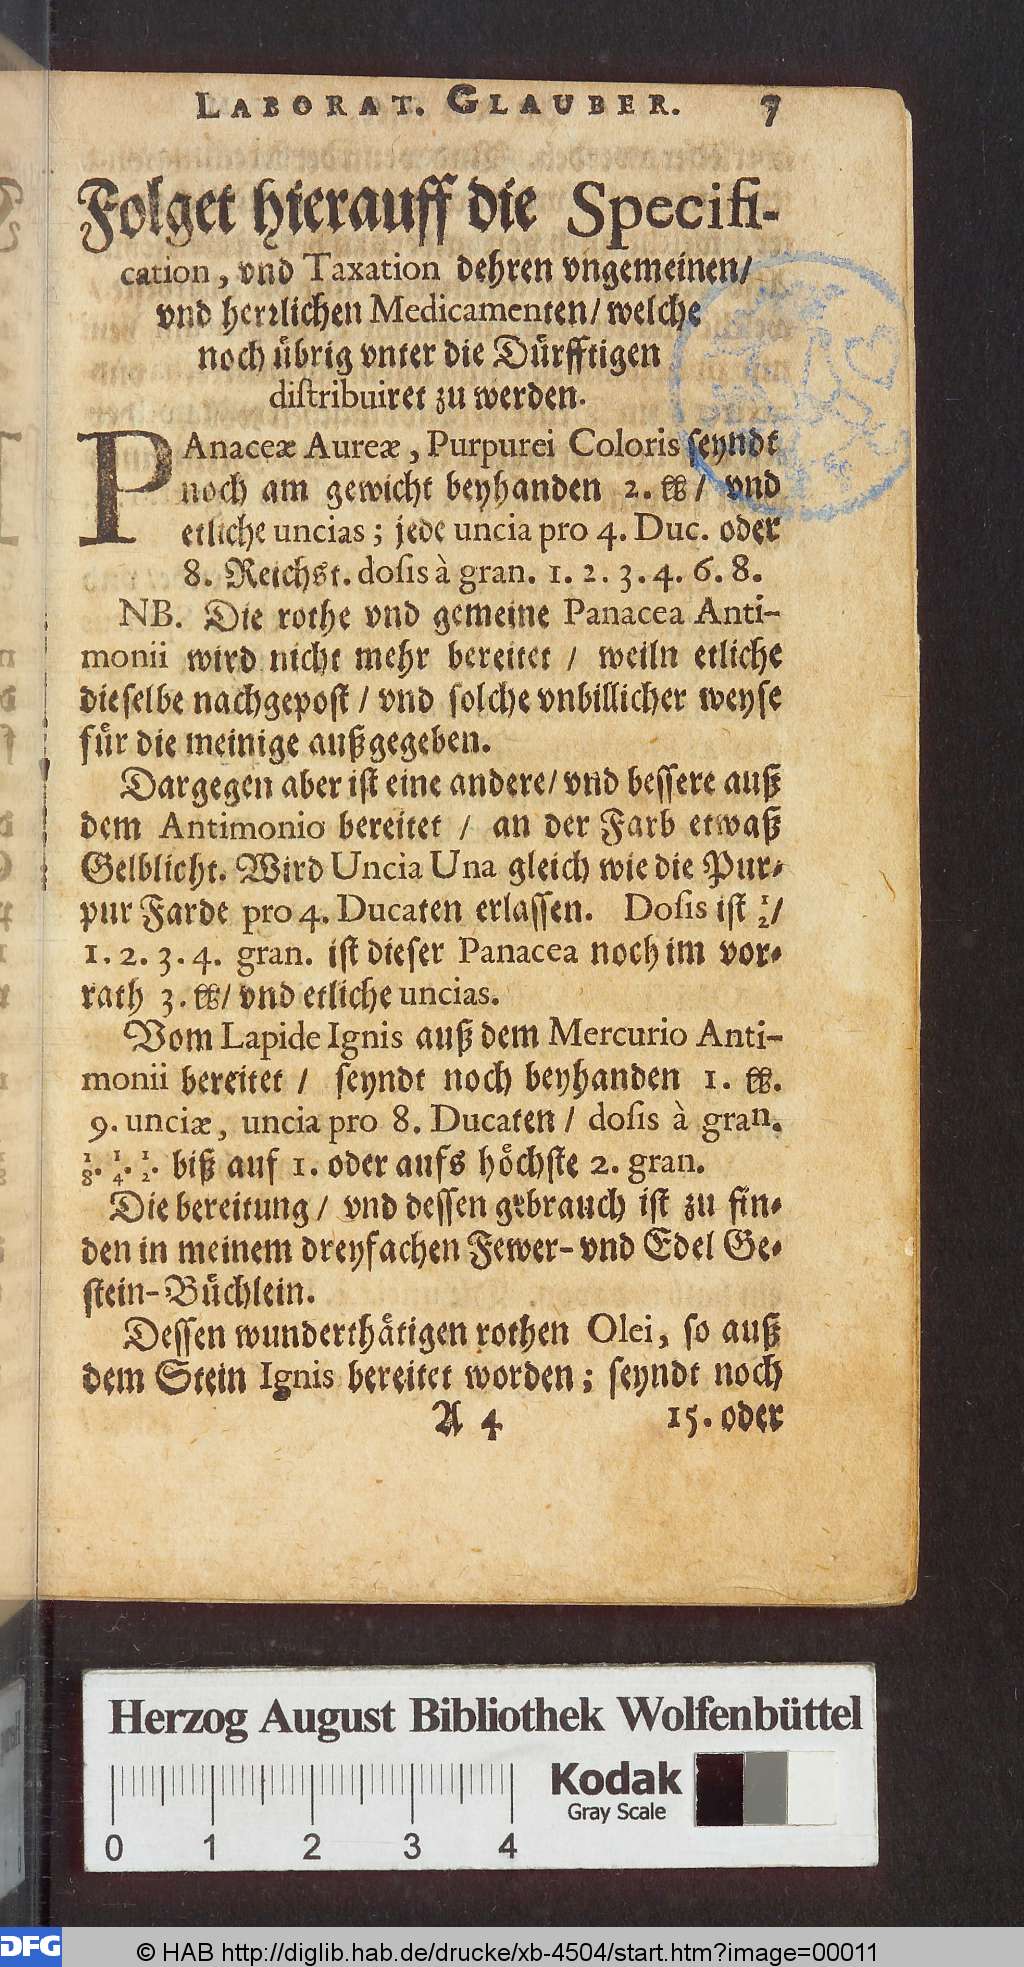 LABORAT. GLAUBER. 7
Folget hierauff die Specifi-
cation, vnd Taxation dehren vngemeinen/
vnd herꝛlichen Medicamenten/ welche
noch uͤbrig vnter die Duͤrfftigen
distribuiret zu werden.
PAnaceæ Aureæ, Purpurei Coloris seyndt
noch am gewicht beyhanden 2. ℔/ vnd
etliche uncias; jede uncia pro 4. Duc. oder
8. Reichst. dosis à gran. 1. 2. 3. 4. 6. 8.
NB. Die rothe vnd gemeine Panacea Anti-
monii wird nicht mehr bereitet / weiln etliche
dieselbe nachgepost / vnd solche vnbillicher weyse
fuͤr die meinige außgegeben.
Dargegen aber ist eine andere/ vnd bessere auß
dem Antimonio bereitet / an der Farb etwaß
Gelblicht. Wird Uncia Una gleich wie die Pur-
pur Farde pro 4. Ducaten erlassen. Dosis ist ½/
1. 2. 3. 4. gran. ist dieser Panacea noch im vor-
rath 3. ℔/ vnd etliche uncias.
Vom Lapide Ignis auß dem Mercurio Anti-
monii bereitet / seyndt noch beyhanden 1. ℔.
9. unciæ, uncia pro 8. Ducaten / dosis à gran.
⅛. ¼. ½. biß auf 1. oder aufs hoͤchste 2. gran.
Die bereitung / vnd dessen gebrauch ist zu fin-
den in meinem dreyfachen Fewer- vnd Edel Ge-
stein-Buͤchlein.
Dessen wunderthaͤtigen rothen Olei, so auß
dem Stein Ignis bereitet worden; seyndt noch
A 4 15. oder
Herzog August Bibliothek Wolfenbüttel
Kodak
Gray Scale
0 1 2 3 4
DFG
© HAB http://diglib.hab.de/drucke/xb-4504/start.htm?image=00011